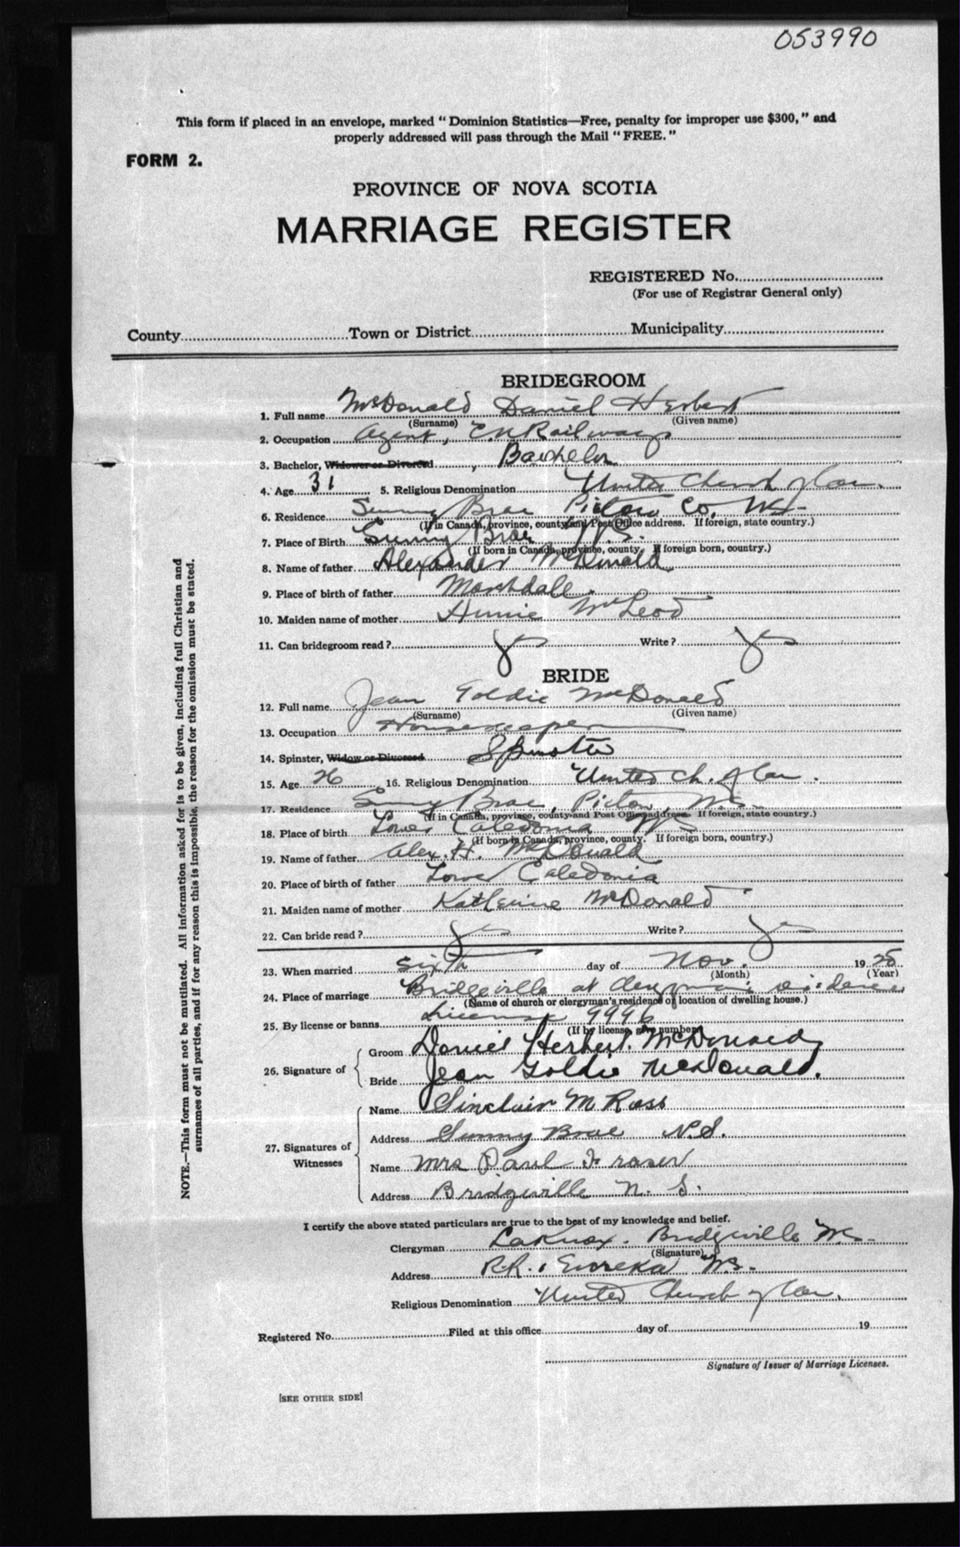 053990
This form if placed in an envelope, marked "Dominion Statistics—Free, penalty for improper use $300," and
properly addressed will pass through the Mail "FREE."
FORM 2.
PROVINCE OF NOVA SCOTIA
MARRIAGE REGISTER
REGISTERED No.
(For use of Registrar General only)
County Town or District Municipality
BRIDEGROOM
1. Full name McDonald Daniel Herbert
(Surname) (Given name)
2. Occupation Agent, C.N Railways
3. Bachelor, Widower or Divorced, Bachelor
4. Age 31 5. Religious Denomination United Church of Can.
6. Residence Sunny Brae Pictou Co. N.S.
(If in Canada, province, county and Post Office address. If foreign, state country.)
7. Place of Birth Sunny Brae N.S.
(If born in Canada, province, county. If foreign born, country.)
8. Name of father Alexander McDonald
9. Place of birth of father Marshdall
10. Maiden name of mother Annie McLeod
11. Can bridegroom read? yes Write? yes
BRIDE
12. Full name Jean Goldie McDonald
(Surname) (Given name)
13. Occupation Housekeeper
14. Spinster, Widow or Divorced Spinster
15. Age 26 16. Religious Denomination United Ch. of Can.
17. Residence Sunny Brae, Pictou, N.S.
(If in Canada, province, county and Post Office address. If foreign, state country.)
18. Place of birth Lower Caledonia N.S.
(If born in Canada, province, county. If foreign born, country.)
19. Name of father Alex. H. McDonald
20. Place of birth of father Lower Caledonia
21. Maiden name of mother Katherine McDonald
22. Can bride read? yes Write? yes
23. When married sixth day of Nov. 1928
(Month) (Year)
24. Place of marriage Bridgeville at clergyman's residence
(Name of church or clergyman's residence or location of dwelling house.)
25. By license or banns License 9996
(If by license, give number)
26. Signature of
Groom Daniel Herbert McDonald
Bride Jean Goldie McDonald.
27. Signatures of Witnesses
Name Sinclair M Ross
Address Sunny Brae N.S.
Name Mrs Paul Fraser
Address Bridgeville N. S.
I certify the above stated particulars are true to the best of my knowledge and belief.
Clergyman LaKnox. Bridgeville N.S.
(Signature)
Address R.R.1 Eureka N.S.
Religious Denomination United Church of Can.
Registered No. Filed at this office day of 19
Signature of Issuer of Marriage Licenses.
[SEE OTHER SIDE]
NOTE.—This form must not be mutilated. All information asked for is to be given, including full Christian and
surnames of all parties, and if for any reason this is impossible, the reason for the omission must be stated.